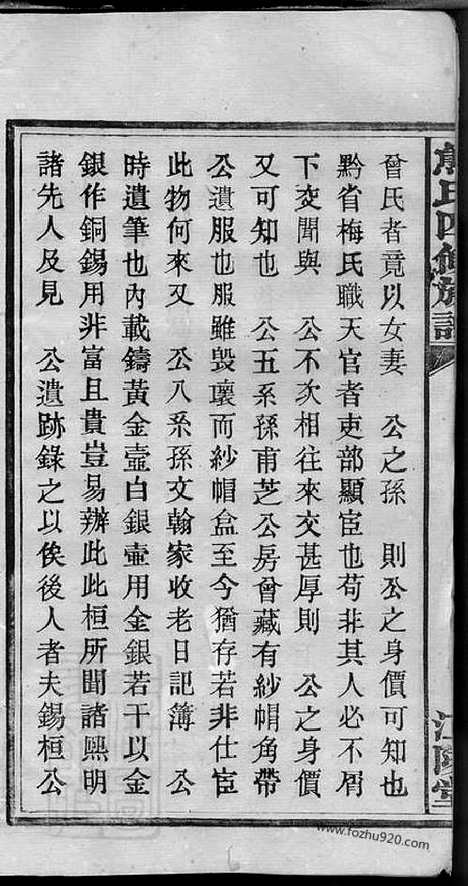 曾氏者竟以女妻　公之孫　則公之身價可知也
黔省梅氏職天官者吏部顯宦也苟非其人必不屑
下交聞與　公不次相往來交甚厚則　公之身價
又可知也　公五系孫甫芝公房曾藏有紗帽角帶
公遺服也服雖毀壞而紗帽盒至今猶存若非仕宦
此物何來又　公八系孫文翰家收老日記簿　公
時遺筆也內載鑄黃金壺白銀壺用金銀若干以金
銀作銅錫用非富且貴豈易辦此此桓所聞諸熈明
諸先人及見　公遺跡錄之以俟後人者夫錫桓公
氏四修族譜
www.fozhu920.com